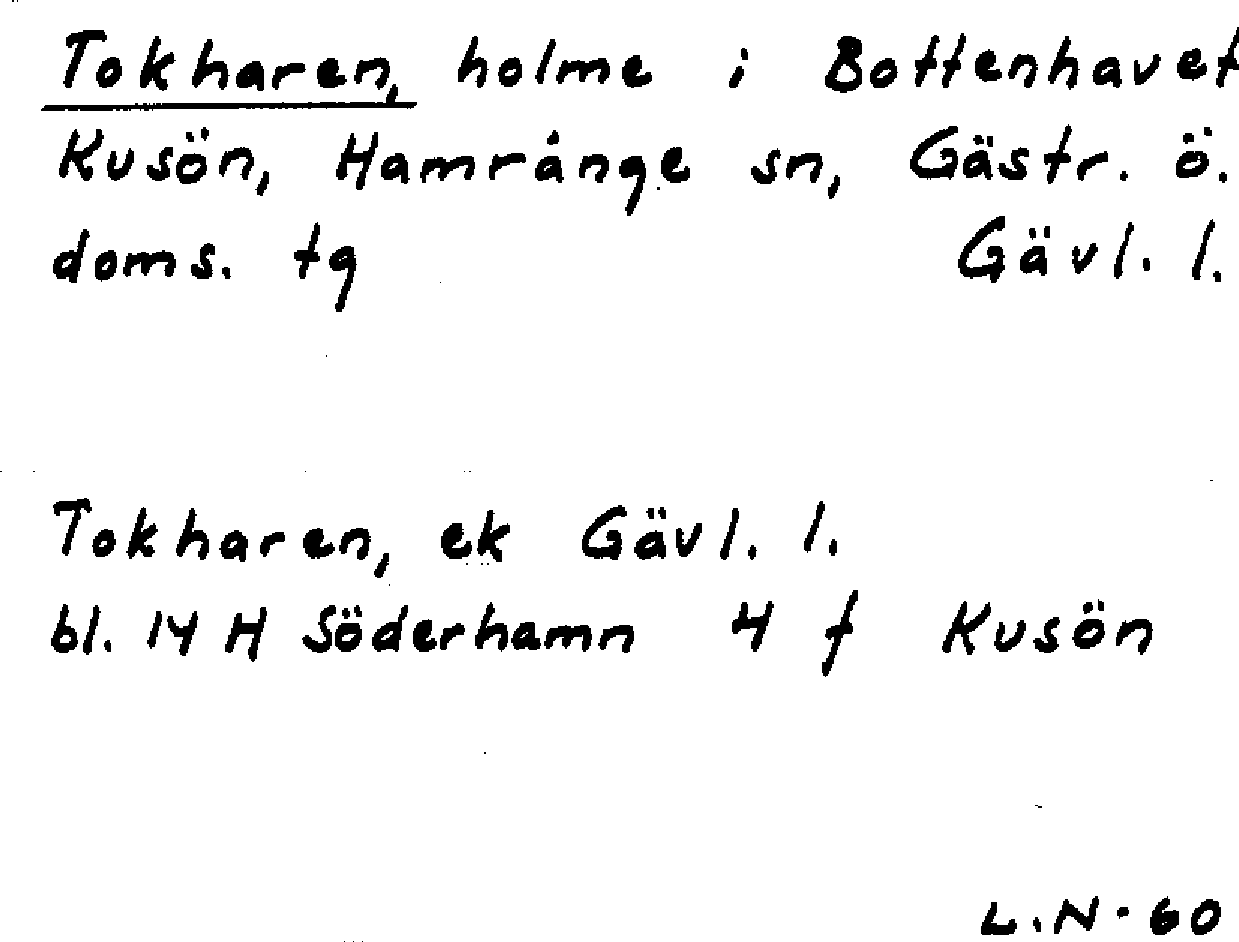 Tokharen, holme i Bottenhavet
Kusön, Hamrånge sn, Gästr. ö.
doms. tg Gävl. l.
Tokharen, ek Gävl. l.
bl. 14 H Söderhamn 4 f Kusön
L.N-60